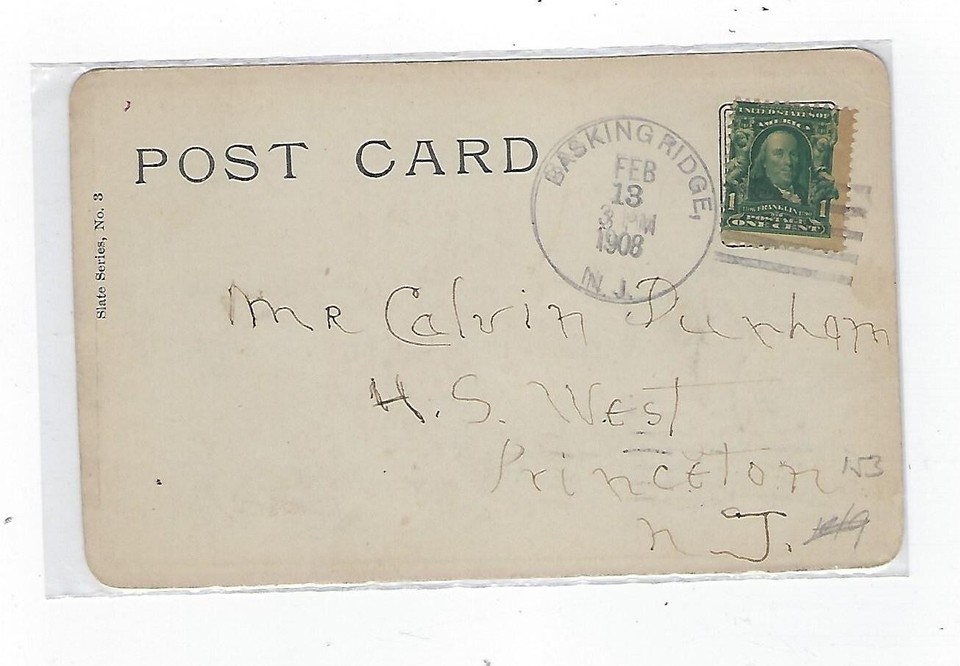 POST CARD
Slate Series, No. 3
BASKING RIDGE,
FEB
13
3 PM
1908
N. J.
UNITED STATES OF
AMERICA
1 1
FRANKLIN
POSTAGE
ONE CENT
Mr Calvin Dunham
H. S. West
Princeton
153
N J.